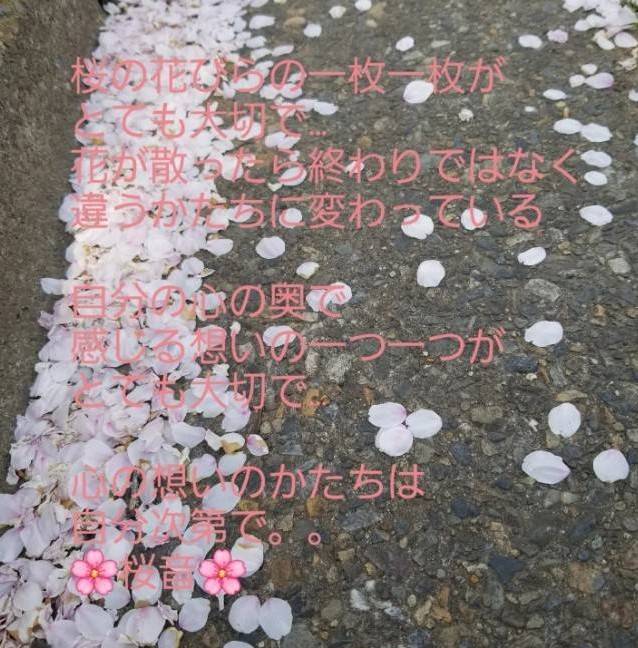 桜の花びらの一枚一枚が
とても大切で…
花が散ったら終わりではなく
違うかたちに変わっている
自分の心の奥で
感じる想いの一つ一つが
とても大切で…
心の想いのかたちは
自分次第で。。
🌸桜音🌸